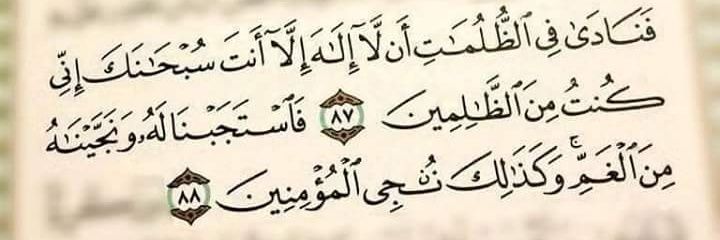 فَنَادَىٰ فِى ٱلظُّلُمَٰتِ أَن لَّآ إِلَٰهَ إِلَّآ أَنتَ سُبْحَٰنَكَ إِنِّى
كُنتُ مِنَ ٱلظَّٰلِمِينَ ٨٧ فَٱسْتَجَبْنَا لَهُۥ وَنَجَّيْنَٰهُ
مِنَ ٱلْغَمِّ ۚ وَكَذَٰلِكَ نُۨجِى ٱلْمُؤْمِنِينَ ٨٨